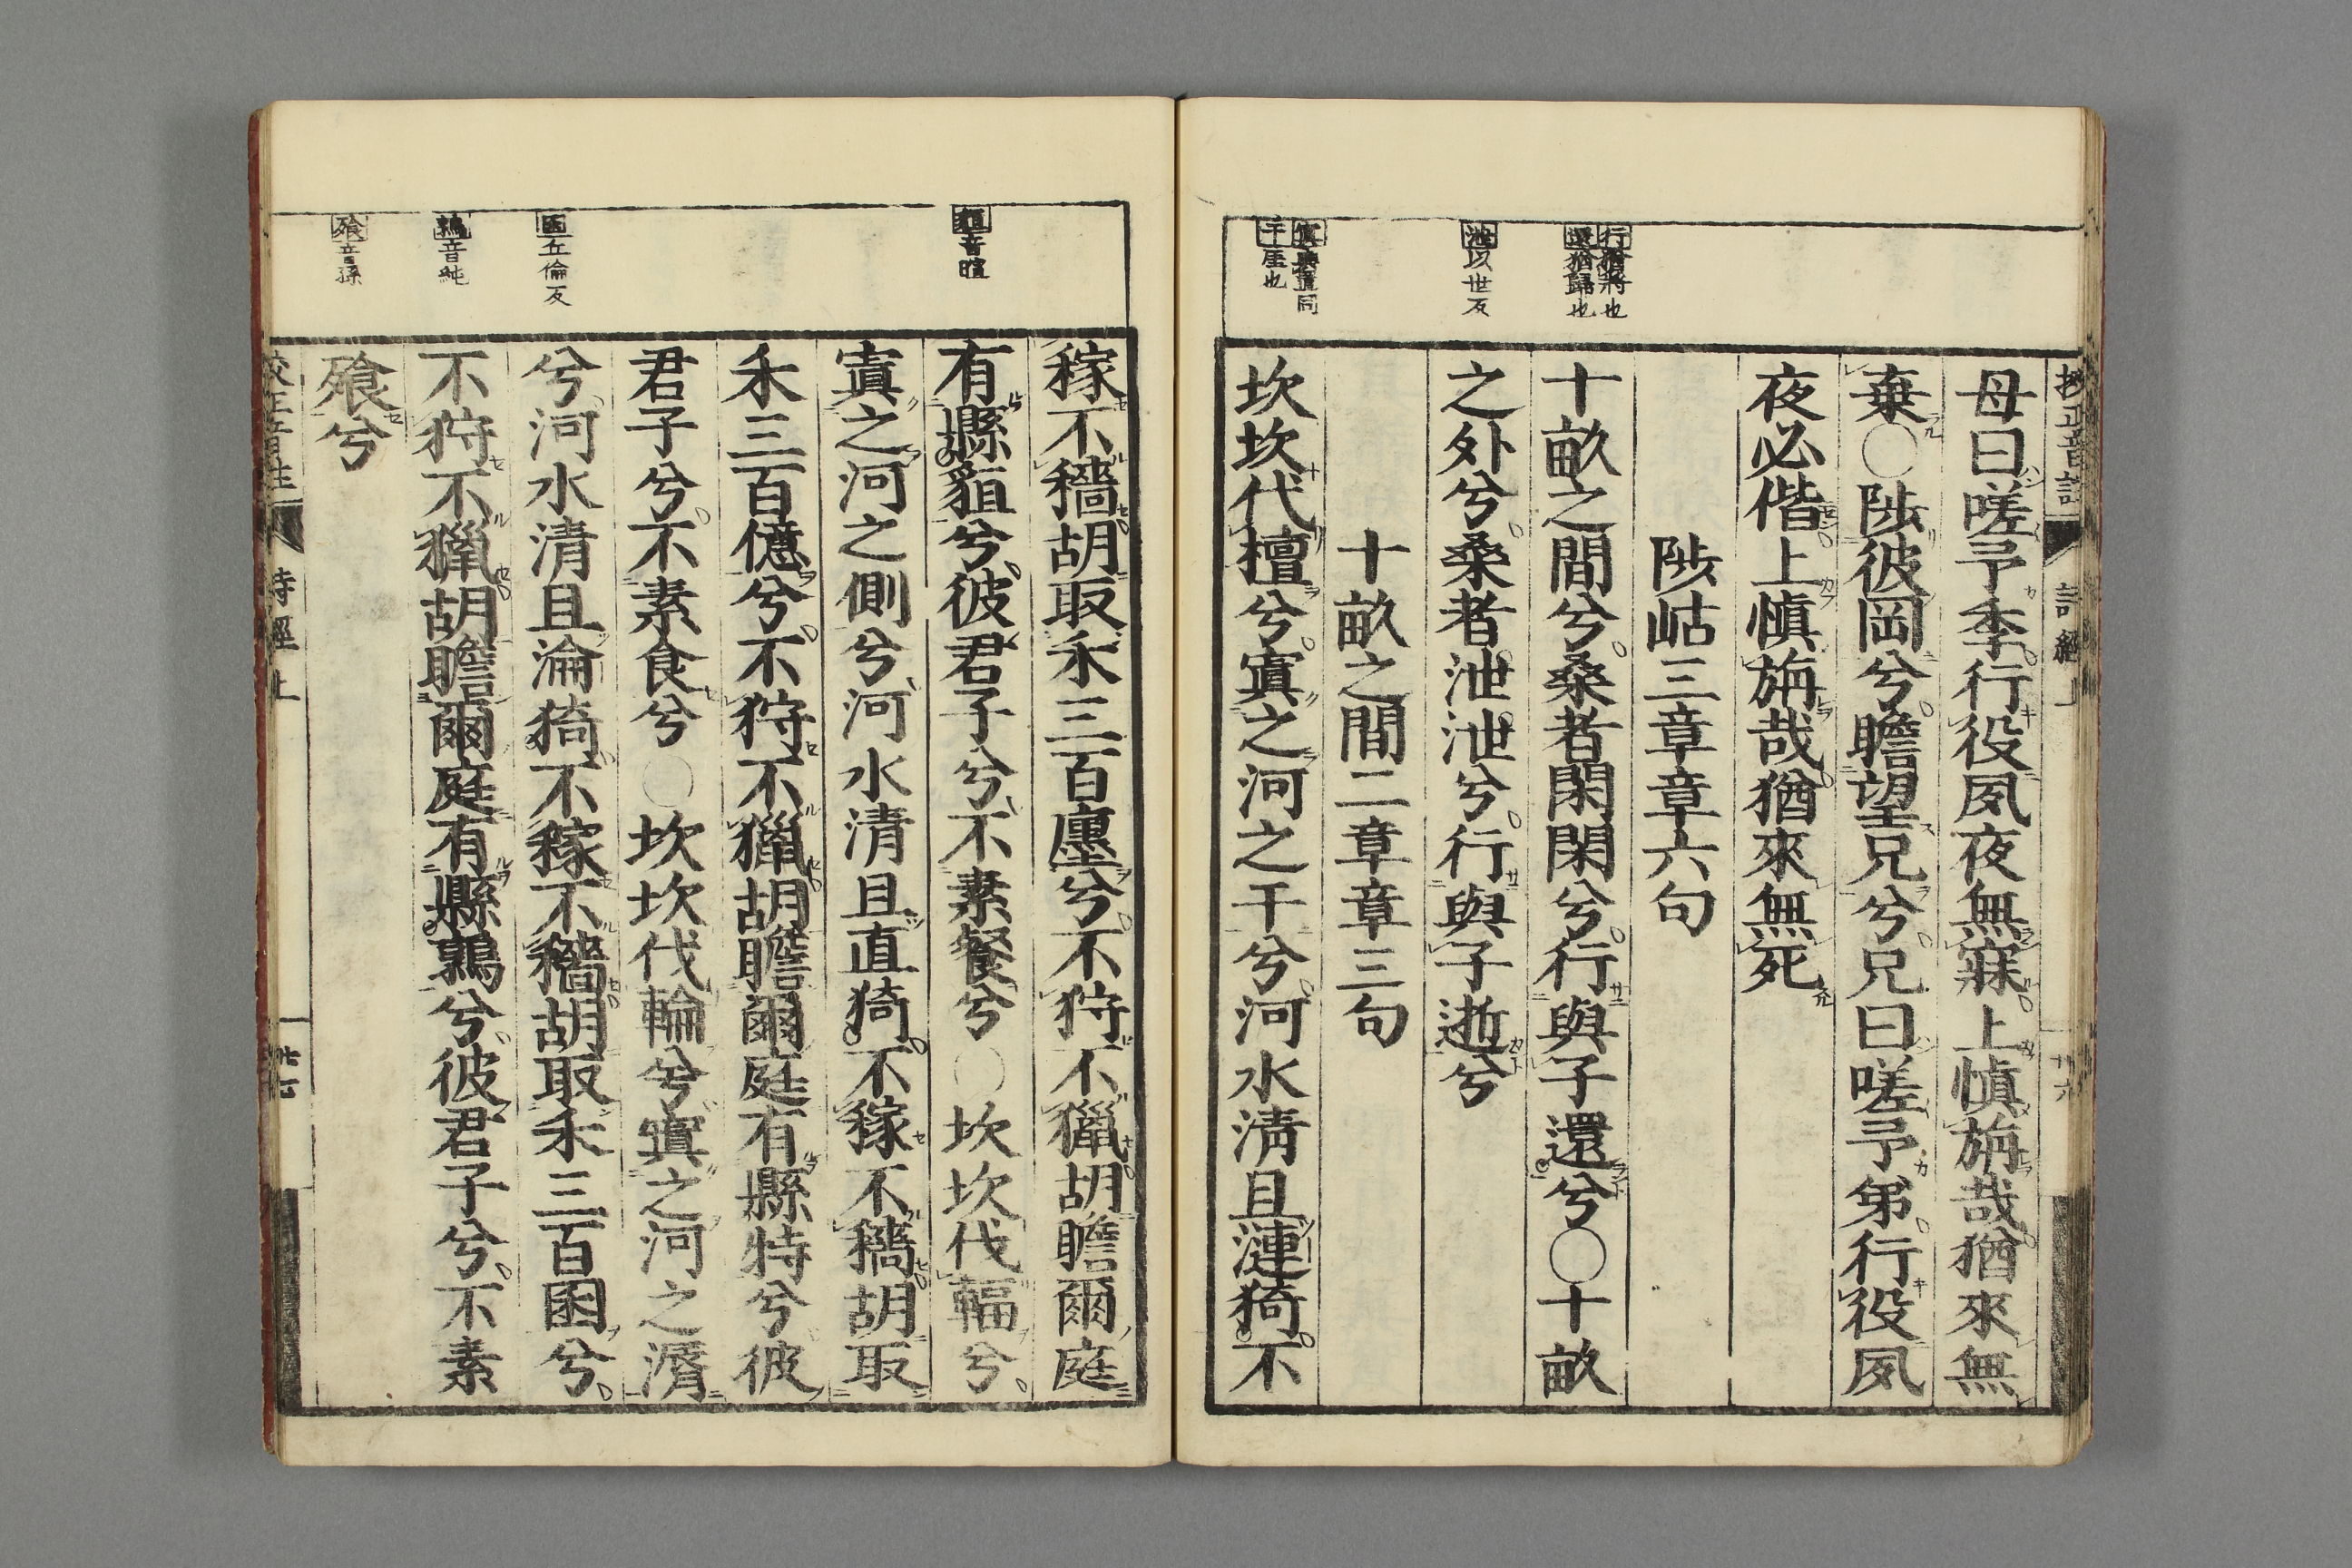 校正音註 詩經上 廿六
行猶將也
還猶歸也
泄以世反
寘與置同
干厓也
母曰嗟予季行役夙夜無寐上愼旃哉猶來無
棄○陟彼岡兮瞻望兄兮兄曰嗟予弟行役夙
夜必偕上愼旃哉猶來無死
陟岵三章章六句
十畝之間兮桑者閑閑兮行與子還兮○十畝
之外兮桑者泄泄兮行與子逝兮
十畝之間二章章三句
坎坎伐檀兮寘之河之干兮河水淸且漣猗不
貆音暄
囷丘倫反
鶉音純
飱音孫
稼不穡胡取禾三百廛兮不狩不獵胡瞻爾庭
有縣貆兮彼君子兮不素餐兮○坎坎伐輻兮
寘之河之側兮河水清且直猗不稼不穡胡取
禾三百億兮不狩不獵胡瞻爾庭有縣特兮彼
君子兮不素食兮○坎坎伐輪兮寘之河之漘
兮河水清且淪猗不稼不穡胡取禾三百囷兮
不狩不獵胡瞻爾庭有縣鶉兮彼君子兮不素
飱兮
校正音註 詩經上